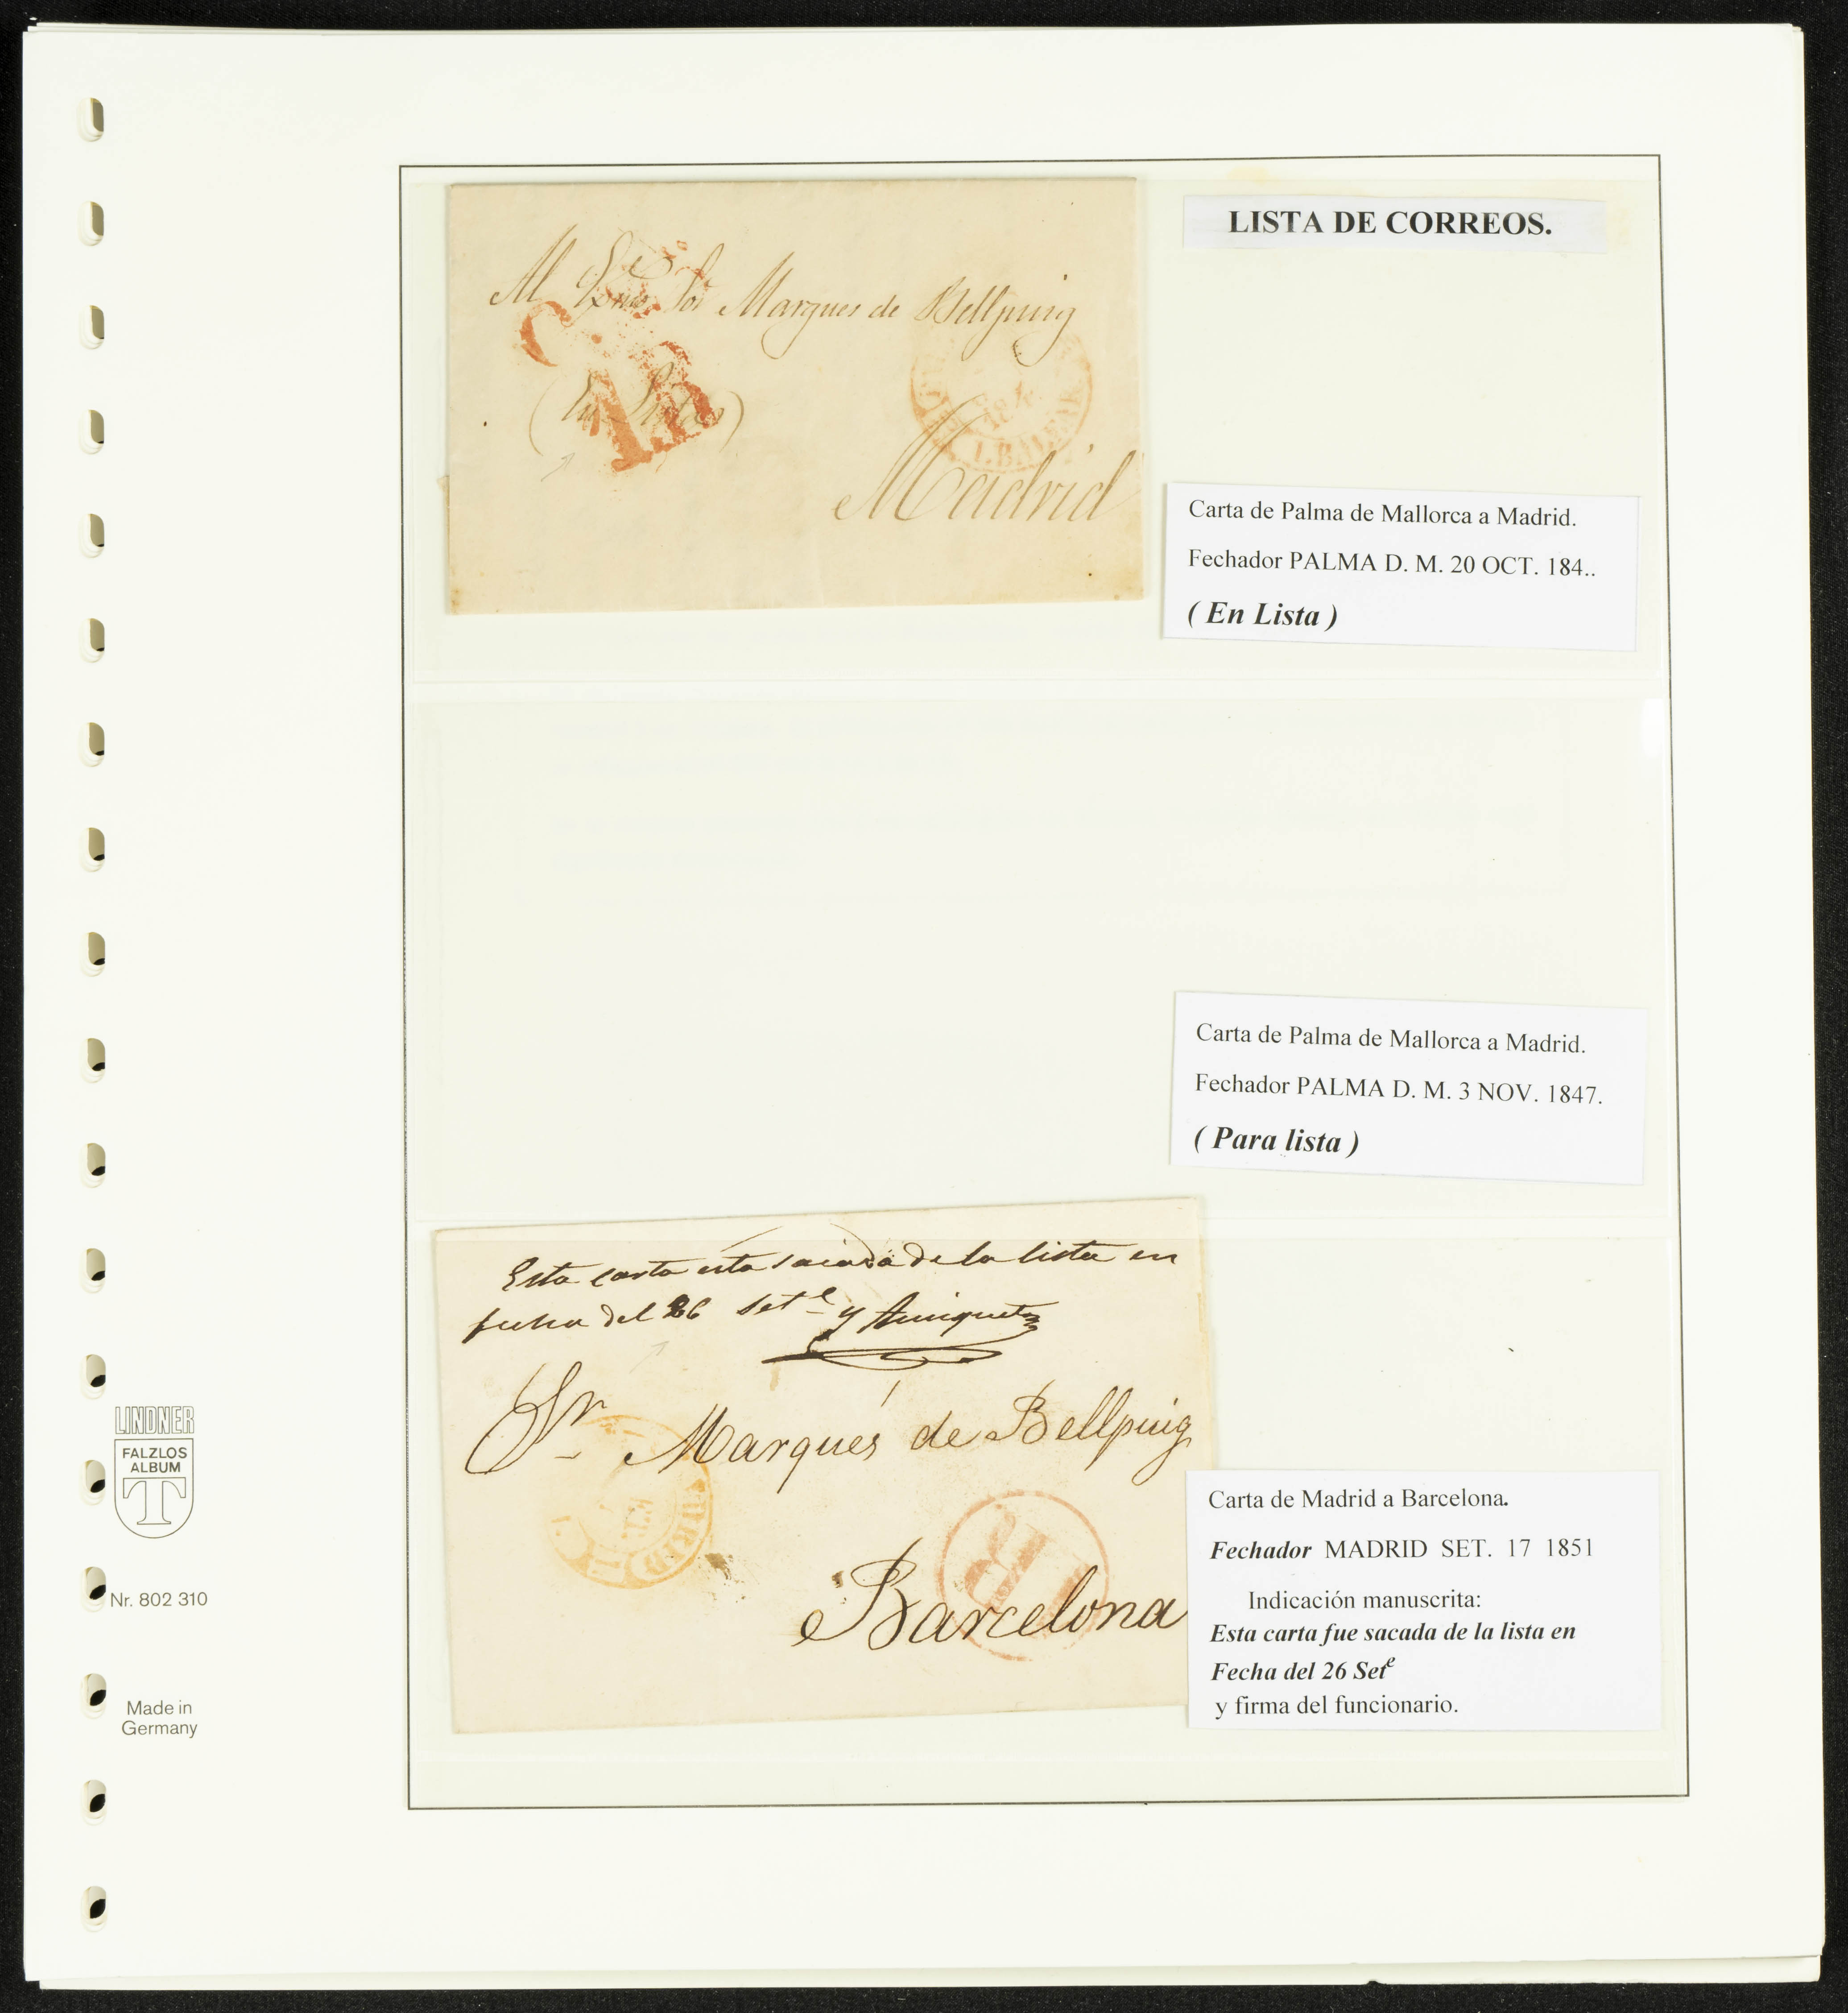 LISTA DE CORREOS.
Al Exmo. Sor Marques de Bellpuig
(En Lista)
Madrid
I. BALEAR
184
Carta de Palma de Mallorca a Madrid.
Fechador PALMA D. M. 20 OCT. 184..
( En Lista )
Carta de Palma de Mallorca a Madrid.
Fechador PALMA D. M. 3 NOV. 1847.
( Para lista )
Esta carta esta sacada de la lista en
fecha del 26 Sete y
Sr Marqués de Bellpuig
Barcelona
Carta de Madrid a Barcelona.
Fechador MADRID SET. 17 1851
Indicación manuscrita:
Esta carta fue sacada de la lista en
Fecha del 26 Sete
y firma del funcionario.
LINDNER
FALZLOS
ALBUM
T
Nr. 802 310
Made in
Germany